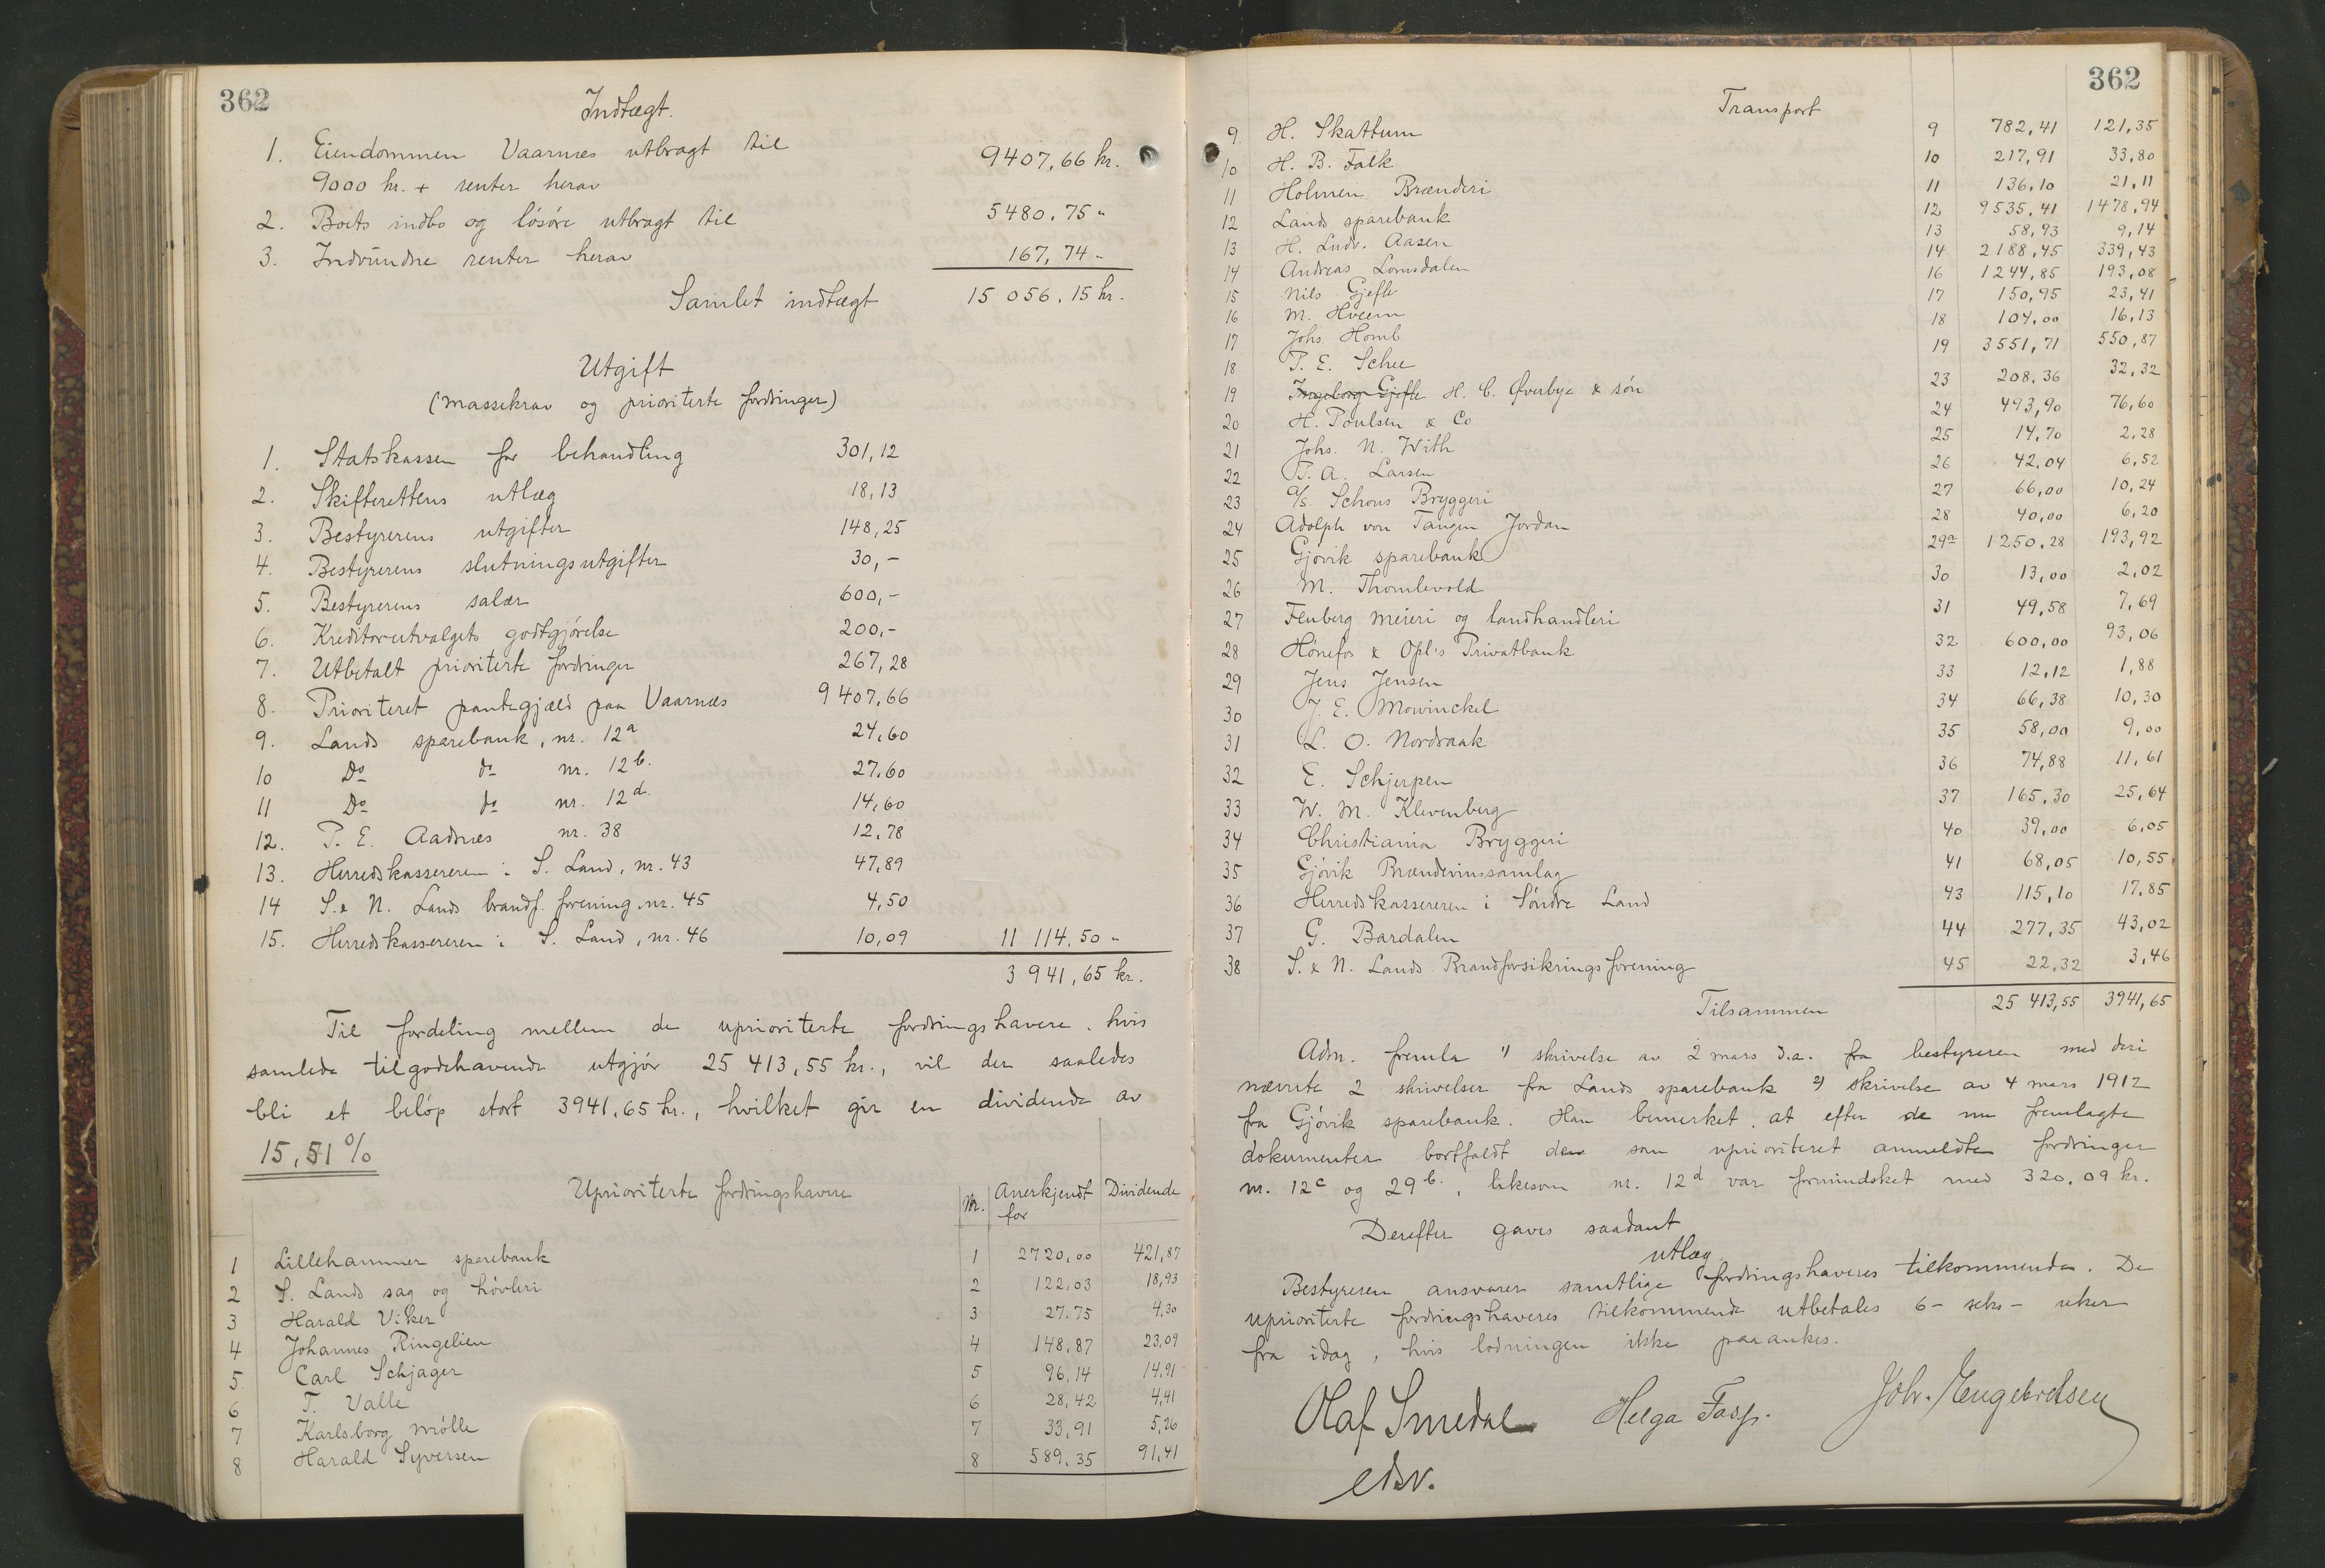 362
Indtægt.
1. Eiendommen Vaarnes utbragt til
9000 kr. + renter herav 9407,66 kr.
2. Boets indbo og lösöre utbragt til 5480,75 "
3. Indvundne renter herav 167,74 "
Samlet indtægt 15 056,15 kr.
Utgift
(massekrav og prioriterte fordringer)
1. Statskassen for behandling 301,12
2. Skifterettens utlæg 18,13
3. Bestyrerens utgifter 148,25
4. Bestyrerens slutningsutgifter 30,-
5. Bestyrerens salær 600,-
6. Kreditorutvalgets godtgjörelse 200,-
7. Utbetalt prioriterte fordringer 267,28
8. Prioritert pantegjæld paa Vaarnæs 9407,66
9. Lands sparebank, nr. 12a 24,60
10 Do do nr. 12b. 27,60
11 Do do nr. 12d. 14,60
12. P. E. Aadnæs nr. 38 12,78
13. Herredskassereren i S. Land, nr. 43 47,89
14 S. & N. Lands brandf. forening nr. 45 4,50
15. Herredskassereren i S. Land, nr. 46 10,09 11 114,50 "
3 941,65 kr.
Til fordeling mellem de uprioriterte fordringshavere, hvis
samlede tilgodehavende utgjör 25 413,55 kr., vil der saaledes
bli et belöp stort 3941,65 kr., hvilket gir en dividende av
15,51 %
Uprioriterte fordringshavere Nr. Anerkjendt for Dividende
1 Lillehammer sparebank 1 2720,00 421,87
2 S. Lands sag og hövleri 2 122,03 18,93
3 Harald Viker 3 27,75 4,30
4 Johannes Ringelien 4 148,87 23,09
5 Carl Schjager 5 96,14 14,91
6 T. Valle 6 28,42 4,41
7 Karlsborg mölle 7 33,91 5,26
8 Harald Syversen 8 589,35 91,41
362
Transport
9 H. Skattum 9 782,41 121,35
10 H. B. Falk 10 217,91 33,80
11 Holmen Brænderi 11 136,10 21,11
12 Lands sparebank 12 9535,41 1478,94
13 H. Ludv. Aasen 13 58,93 9,14
14 Andreas Lomsdalen 14 2188,45 339,43
15 Nils Gjefle 16 1244,85 193,08
16 M. Hveem 17 150,95 23,41
17 Johs. Homb 18 104,00 16,13
18 P. E. Schee 19 3551,71 550,87
19 Ingeborg Gjefle H. C. Øverbye & sön 23 208,36 32,32
20 H. Poulsen & Co 24 493,90 76,60
21 Johs. N. With 25 14,70 2,28
22 P. A. Larsen 26 42,04 6,52
23 A/S. Schous Bryggeri 27 66,00 10,24
24 Adolph von Tangen Jordan 28 40,00 6,20
25 Gjövik sparebank 29a 1250,28 193,92
26 M. Thomlevold 30 13,00 2,02
27 Fluberg meieri og landhandleri 31 49,58 7,69
28 Hönefos & Opl's Privatbank 32 600,00 93,06
29 Jens Jensen 33 12,12 1,88
30 J. E. Mowinckel 34 66,38 10,30
31 L. O. Nordraak 35 58,00 9,00
32 E. Schjerpen 36 74,88 11,61
33 W. M. Klevenberg 37 165,30 25,64
34 Christiania Bryggeri 40 39,00 6,05
35 Gjövik Brændevinssamlag 41 68,05 10,55
36 Herredskassereren i Söndre Land 43 115,10 17,85
37 G. Bardalen 44 277,35 43,02
38 S. & N. Lands Brandforsikringsforening 45 22,32 3,46
Tilsammen 25 413,55 3941,65
Adm. fremla 1) skrivelse av 2 mars d.a. fra bestyreren med deri
nævnte 2 skrivelser fra Lands sparebank 2) skrivelse av 4 mars 1912
fra Gjövik sparebank. Han bemerket, at efter de nu fremlagte
dokumenter bortfaldt den som uprioriteret anmeldte fordringer
nr. 12c og 29b., likesom nr. 12d var formindsket med 320,09 kr.
Derefter gaves saadant
utlæg
Bestyreren ansvarer samtlige fordringshaveres tilkommende. De
uprioriterte fordringshaveres tilkommende utbetales 6 - seks - uker
fra idag, hvis lodningen ikke paaankes.
Olaf Smedal Helga Joh. Engebretsen
edsv.